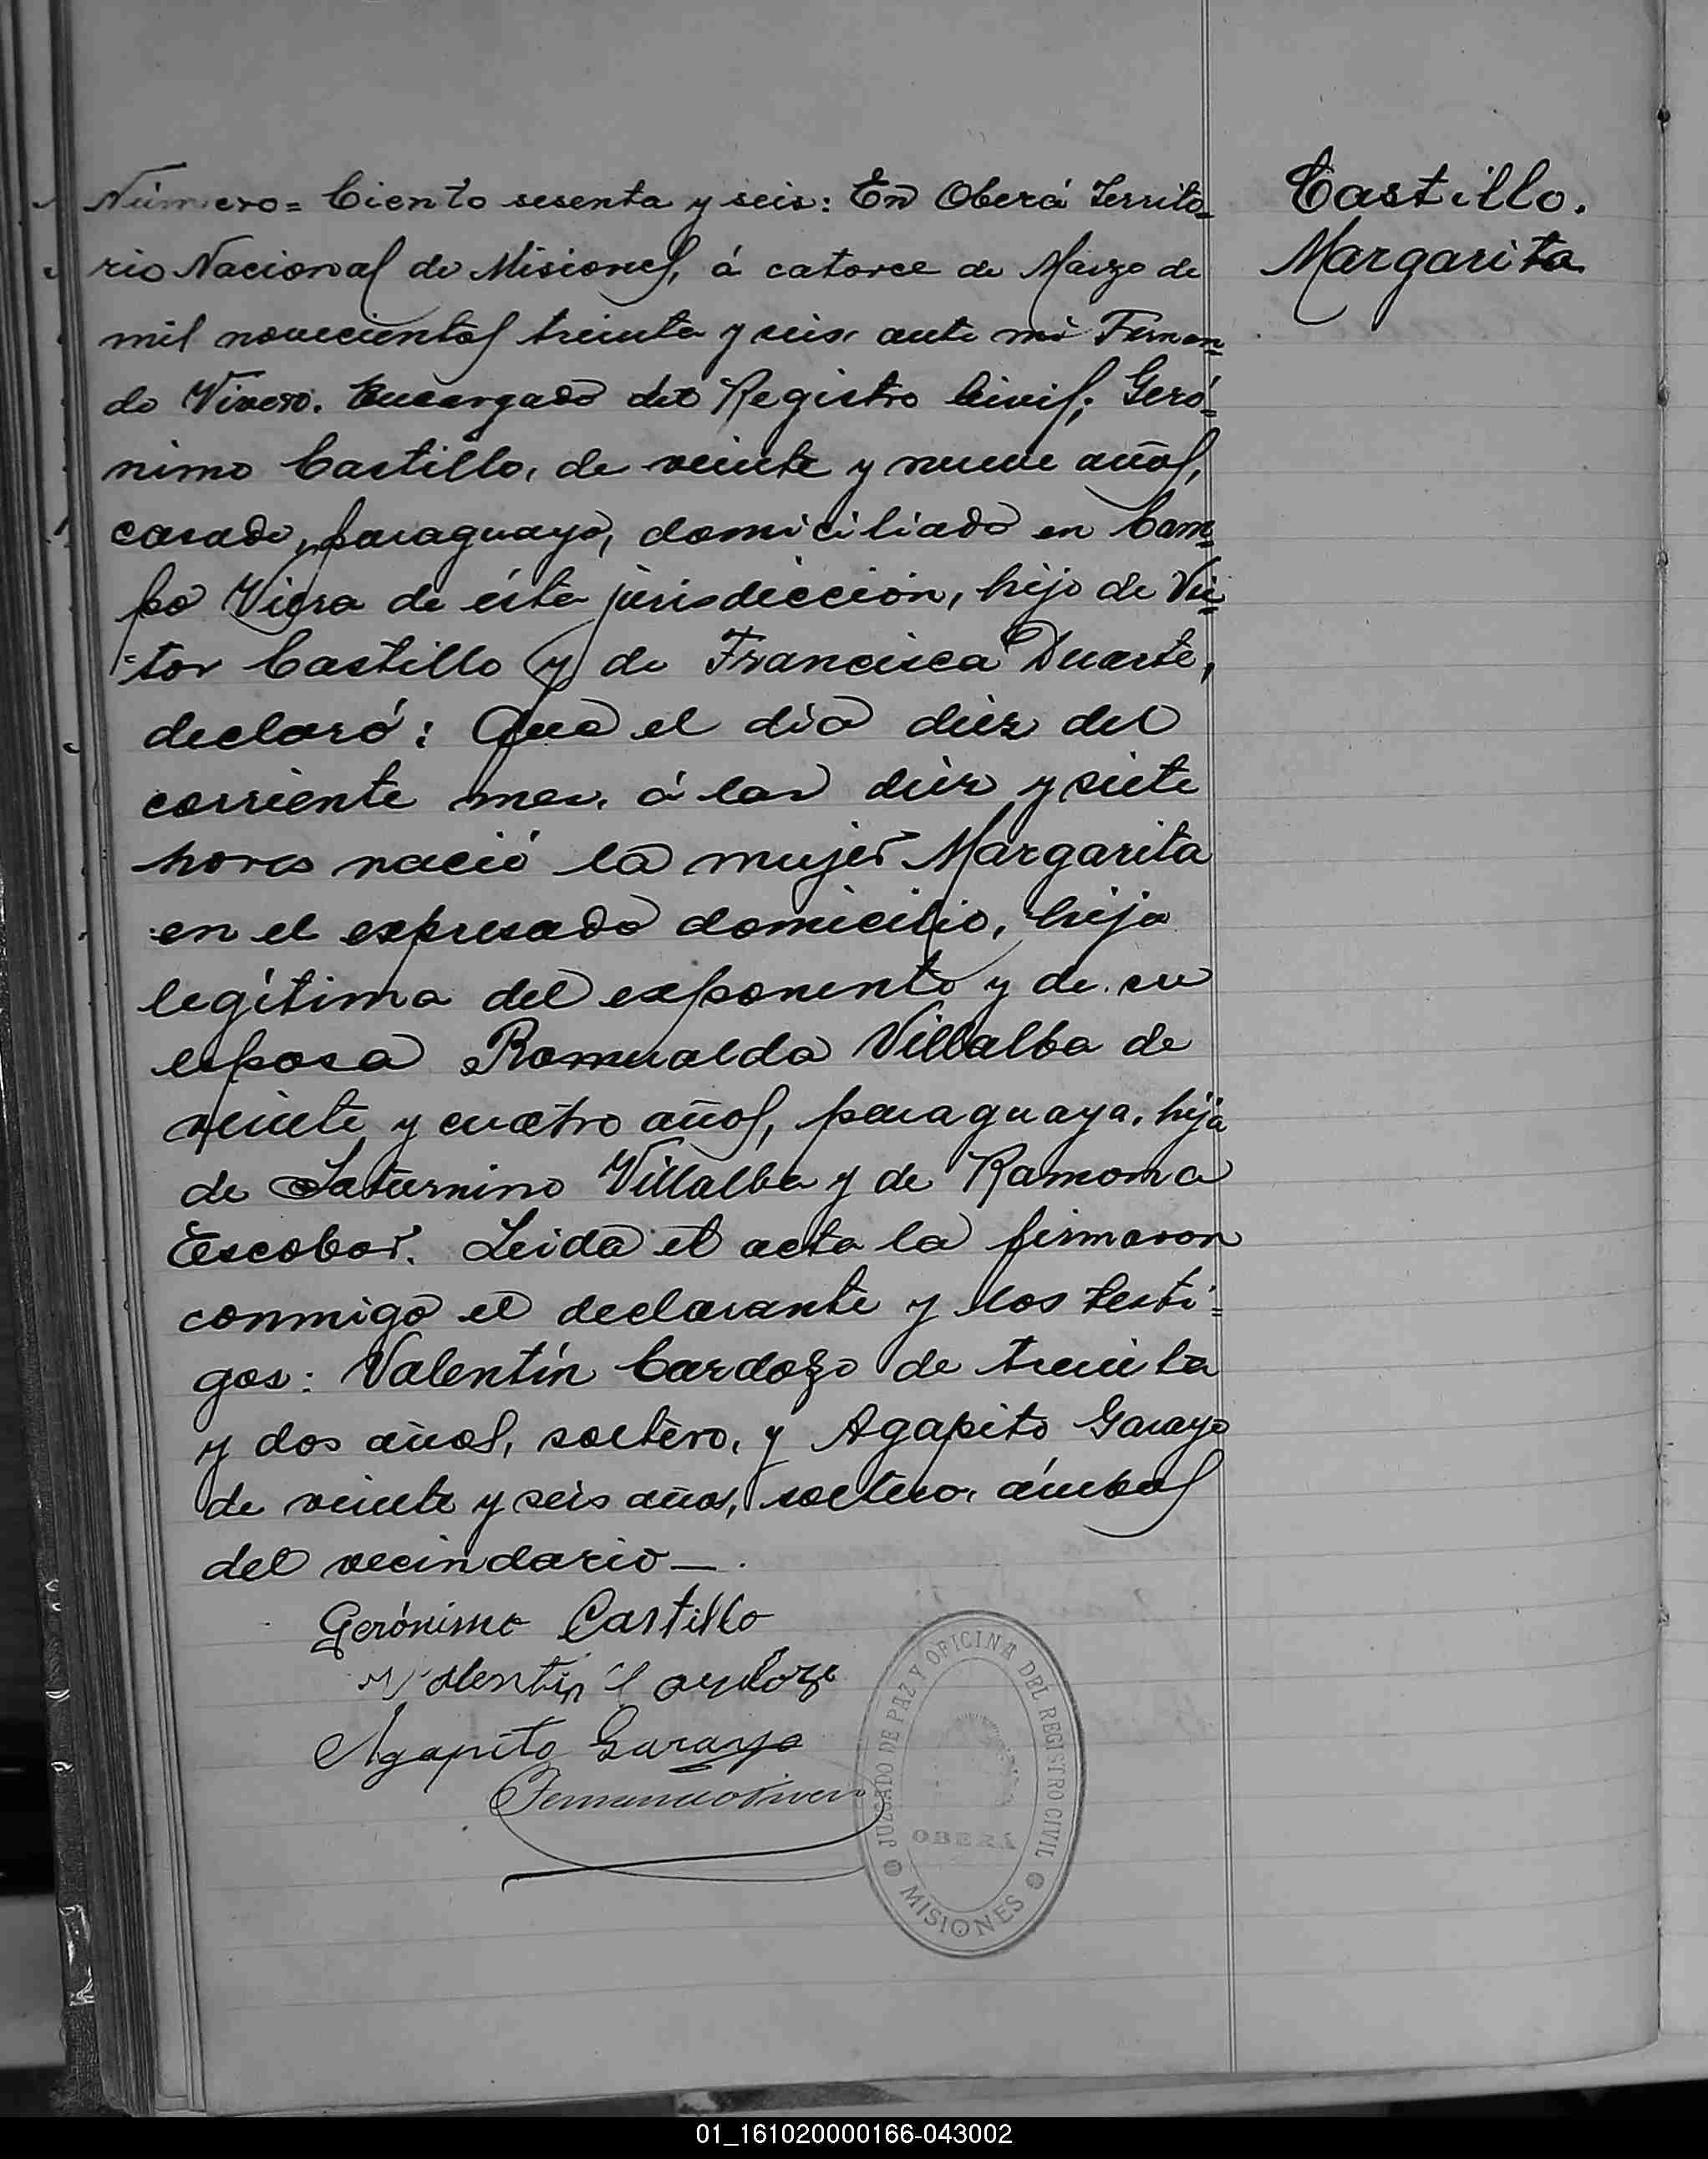 Número= Ciento sesenta y seis: En Oberá Territo=
rio Nacional de Misiones, á catorce de Marzo de
mil novecientos treinta y seis ante mi Fernan=
do Vivero. Encargado del Registro Civil; Geró=
nimo Castillo, de veinte y nueve años,
casado, paraguayo, domiciliado en Cam=
po Viera de ésta jurisdicción, hijo de Víc=
=tor Castillo y de Francisca Duarte,
declaró: Que el día diez del
corriente mes, á las diez y siete
horas nació la mujer Margarita
en el expresado domicilio, hija
legítima del exponente y de su
esposa Romualda Villalba de
veinte y cuatro años, paraguaya, hija
de Saturnino Villalba y de Ramona
Escobar. Leida el acta la firmaron
conmigo el declarante y los testi=
gos: Valentín Cardozo de treinta
y dos años, soltero, y Agapito Garayo
de veinte y seis años, soltero, ámbos
del vecindario—.
Castillo.
Margarita
Gerónimo Castillo
Valentin Cardozo
Agapito Garayo
Fernando Vivero
JUZGADO DE PAZ Y OFICINA DEL REGISTRO CIVIL
OBERÁ
MISIONES
01_161020000166-043002